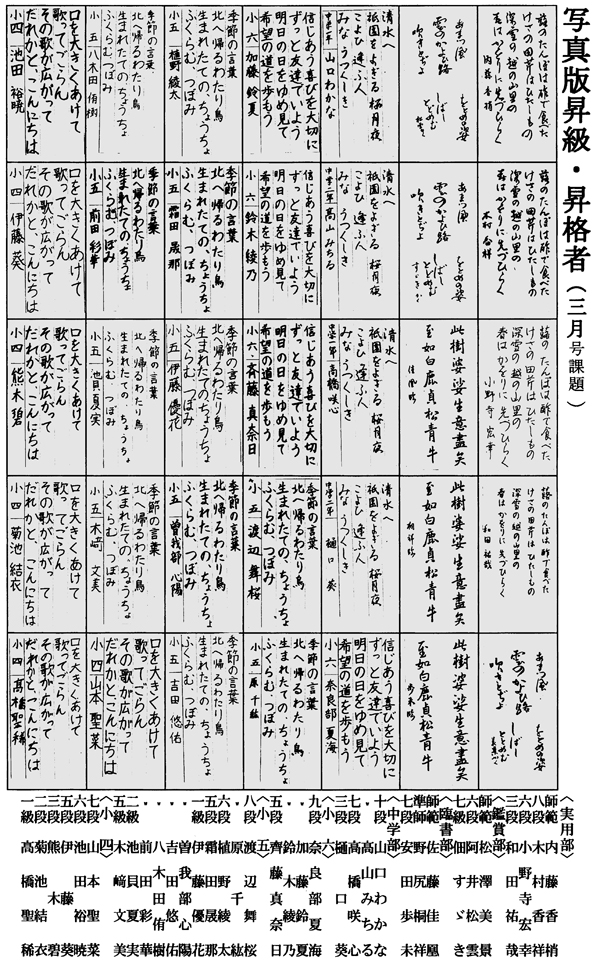 写真版昇級・昇格者（三月号課題）
蕗のたんぽは酢で食べた
けさの田芹はひたしもの
深雪の越の山里の
春はかをりに先づひらく
あまつ風
雲のかよひ路
吹きとぢよ
をとめの姿
しばし
とどめむ
清水へ
祇園をよぎる桜月夜
こよひ逢ふ人
みなうつくしき
中学一年 山口わかな
信じあう喜びを大切に
ずっと友達でいよう
明日の日をゆめ見て
希望の道を歩もう
小六 加藤鈴夏
季節の言葉
北へ帰るわたり鳥
生まれたての、ちょうちょ
ふくらむ、つぼみ
小五 植野綾太
季節の言葉
北へ帰るわたり鳥
生まれたての、ちょうちょ
ふくらむ、つぼみ
小五 八木田侑樹
口を大きくあけて
歌ってごらん
その歌が広がって
だれかと、こんにちは
小四 池田裕暁
蕗のたんぽは酢で食べた
けさの田芹はひたしもの
深雪の越の山里の
春はかをりに先づひらく
あまつ風
雲のかよひ路
吹きとぢよ
をとめの姿
しばし
とどめむ
清水へ
祇園をよぎる桜月夜
こよひ逢ふ人
みなうつくしき
高山みちる
信じあう喜びを大切に
ずっと友達でいよう
明日の日をゆめ見て
希望の道を歩もう
小六 鈴木綾乃
季節の言葉
北へ帰るわたり鳥
生まれたての、ちょうちょ
ふくらむ、つぼみ
小五 霜田晟那
季節の言葉
北へ帰るわたり鳥
生まれたての、ちょうちょ
ふくらむ、つぼみ
小五 前田彩華
口を大きくあけて
歌ってごらん
その歌が広がって
だれかと、こんにちは
小四 伊藤葵
蕗のたんぽは酢で食べた
けさの田芹はひたしもの
深雪の越の山里の
春はかをりに先づひらく
小野寺宏幸
此樹婆娑生意盡矣
至如白鹿貞松青牛
清水へ
祇園をよぎる桜月夜
こよひ逢ふ人
みなうつくしき
高橋咲心
信じあう喜びを大切に
ずっと友達でいよう
明日の日をゆめ見て
希望の道を歩もう
小六 斉藤真奈日
季節の言葉
北へ帰るわたり鳥
生まれたての、ちょうちょ
ふくらむ、つぼみ
小五 伊藤優花
季節の言葉
北へ帰るわたり鳥
生まれたての、ちょうちょ
ふくらむ、つぼみ
小五 池貝夏実
口を大きくあけて
歌ってごらん
その歌が広がって
だれかと、こんにちは
小四 熊木碧
蕗のたんぽは酢で食べた
けさの田芹はひたしもの
深雪の越の山里の
春はかをりに先づひらく
和田祐哉
此樹婆娑生意盡矣
至如白鹿貞松青牛
清水へ
祇園をよぎる桜月夜
こよひ逢ふ人
みなうつくしき
樋口葵
季節の言葉
北へ帰るわたり鳥
生まれたての、ちょうちょ
ふくらむ、つぼみ
小五 渡辺舞桜
季節の言葉
北へ帰るわたり鳥
生まれたての、ちょうちょ
ふくらむ、つぼみ
小五 曽我部心陽
季節の言葉
北へ帰るわたり鳥
生まれたての、ちょうちょ
ふくらむ、つぼみ
小五 木﨑文美
口を大きくあけて
歌ってごらん
その歌が広がって
だれかと、こんにちは
小四 菊池結衣
あまつ風
雲のかよひ路
吹きとぢよ
をとめの姿
しばし
とどめむ
此樹婆娑生意盡矣
至如白鹿貞松青牛
信じあう喜びを大切に
ずっと友達でいよう
明日の日をゆめ見て
希望の道を歩もう
小六 奈良部夏海
季節の言葉
北へ帰るわたり鳥
生まれたての、ちょうちょ
ふくらむ、つぼみ
小五 原千紘
季節の言葉
北へ帰るわたり鳥
生まれたての、ちょうちょ
ふくらむ、つぼみ
小五 吉田悠佑
口を大きくあけて
歌ってごらん
その歌が広がって
だれかと、こんにちは
小四 山本聖菜
口を大きくあけて
歌ってごらん
その歌が広がって
だれかと、こんにちは
小四 髙橋聖稀
〈実用部〉
師範 内藤香梢
八段 木村春祥
三段 小野寺宏幸
和田祐哉
〈鑑賞部〉
師範
六段
〈臨書部〉
師範 佐藤佳凰
準師範
七段
〈中学部〉
十段 山口わかな
高山みちる
高橋咲心
三段 樋口葵
〈小六〉
九段 奈良部夏海
加藤鈴夏
鈴木綾乃
齊藤真奈日
〈小五〉
原千紘
八段 渡辺舞桜
植野綾太
霜田晟那
伊藤優花
曽我部心陽
吉田悠佑
八木田侑樹
前田彩華
池貝夏実
木﨑文美
〈小四〉
七段 山本聖菜
六段 池田裕暁
伊藤葵
熊木碧
菊池結衣
一級 髙橋聖稀